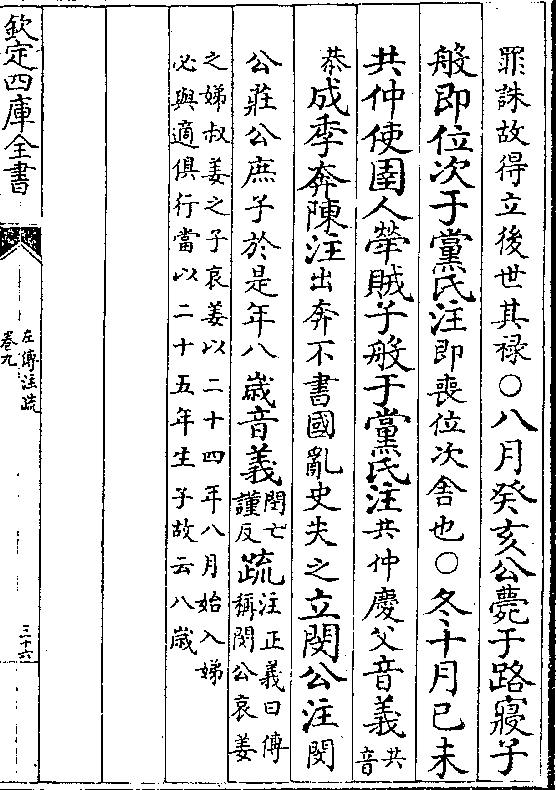 罪誅故得立後世其祿○八月癸亥公薨于路寢子
般即位次于黨氏注即喪位次舍也○冬十月己未
共仲使圉人犖賊子般于黨氏注共仲慶父音義共音
恭成季奔陳注出奔不書國亂史失之立閔公注閔
公莊公庶子於是年八歲音義閔亡謹反疏注正義曰傳稱閔公哀姜
之娣叔姜之子哀姜以二十四年八月始入娣
必與適俱行當以二十五年生子故云八歲
欽定四庫全書
左傳注疏
卷九
三十六